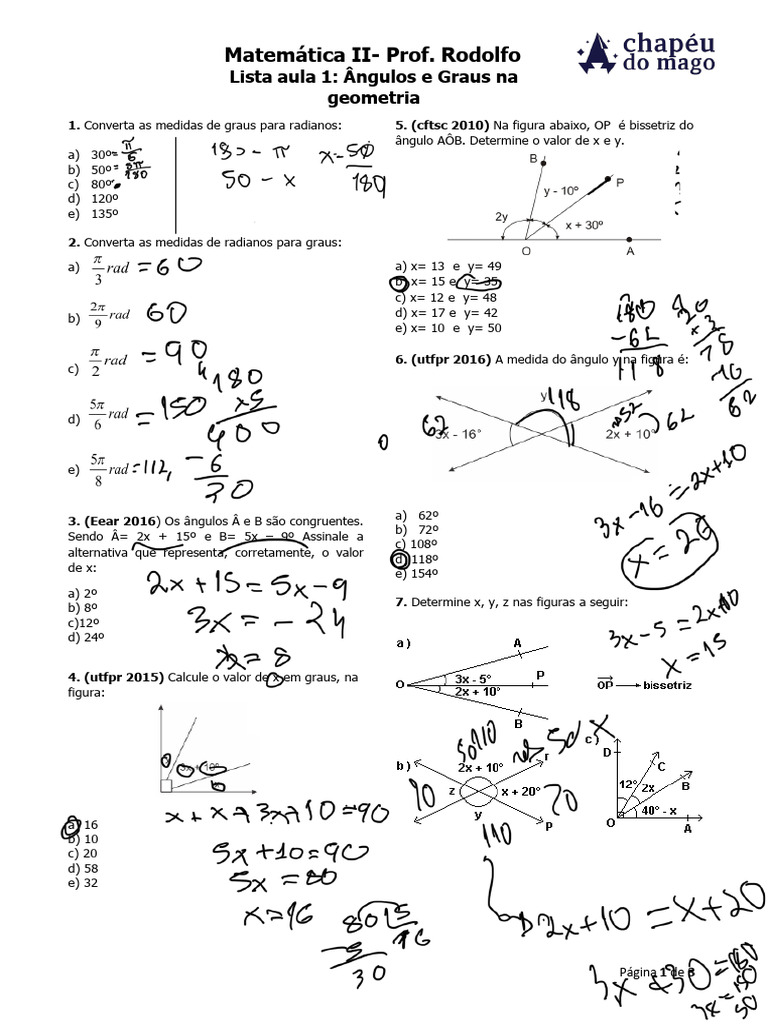 Matemática II- Prof. Rodolfo
Lista aula 1: Ângulos e Graus na
geometria
chapéu
do mago
1. Converta as medidas de graus para radianos:
a) 30º= π/6
b) 50º= 5π/180
c) 80º
d) 120º
e) 135º
180 - π
50 - x
x = 50/180
2. Converta as medidas de radianos para graus:
a) π/3 rad = 60
b) 2π/9 rad 60
c) π/2 rad = 90
d) 5π/6 rad = 150
e) 5π/8 rad = 112,
180
x5
400
-6
30
3. (Eear 2016) Os ângulos  e B são congruentes.
Sendo Â= 2x + 15º e B= 5x – 9º Assinale a
alternativa que representa, corretamente, o valor
de x:
a) 2º
b) 8º
c)12º
d) 24º
2x+15=5x-9
3x = - 24
x = 8
4. (utfpr 2015) Calcule o valor de x em graus, na
figura:
3x + 10°
a) 16
b) 10
c) 20
d) 58
e) 32
x + x + 3x + 10 = 90
5x + 10 = 90
5x = 80
x = 16
80 5
-5 16
30
5. (cftsc 2010) Na figura abaixo, OP é bissetriz do
ângulo AÔB. Determine o valor de x e y.
B
P
y - 10º
2y
x + 30º
O
A
a) x= 13 e y= 49
b) x= 15 e y= 35
c) x= 12 e y= 48
d) x= 17 e y= 42
e) x= 10 e y= 50
180
-62
118
6. (utfpr 2016) A medida do ângulo y na figura é:
78
16
62
y
118
62
3x - 16°
2x + 10°
62
a) 62º
b) 72º
c) 108º
d) 118º
e) 154º
3x - 16 = 2x+10
x = 26
7. Determine x, y, z nas figuras a seguir:
3x - 5 = 2x+10
x = 15
a )
A
3x - 5°
O
P
2x + 10°
B
OP bissetriz
b )
110
2x + 10°
r
z
x + 20°
y
P
70
110
c )
D
C
B
12°
2x
40° - x
O
A
2x+10 = x+20
3x + 30 = 180
3x = 150
50
Página 1 de 3